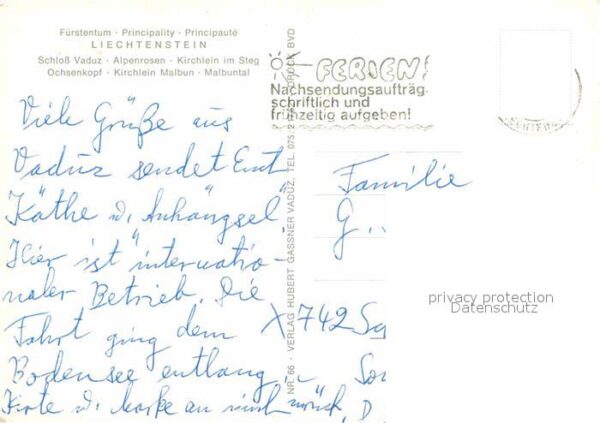 Fürstentum · Principality · Principauté
LIECHTENSTEIN
Schloß Vaduz · Alpenrosen · Kirchlein im Steg
Ochsenkopf · Kirchlein Malbun · Malbuntal
FERIEN!
Nachsendungsaufträg.
schriftlich und
frühzeitig aufgeben!
Viele Grüße aus
Vaduz sendet Euch
Käthe u. "Anhängsel".
Hier ist internatio-
naler Betrieb. Die
Fahrt ging dem
Bodensee entlang
Karte u. Marke an mich zurück,
NR. 66 · VERLAG HUBERT GASSNER VADUZ, TEL. 075 2 DRUCK BVD
Familie
G...
X 742
privacy protection
Datenschutz